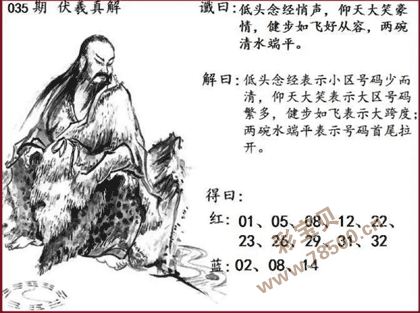 035期 伏羲真解
谶曰：低头念经悄声，仰天大笑豪
情，健步如飞好从容，两碗
清水端平。
解曰：低头念经表示小区号码少而
清，仰天大笑表示大区号码
繁多，健步如飞表示大跨度；
两碗水端平表示号码首尾拉
开。
得曰：
红：01、05、08、12、22、
23、26、29、31、32
蓝：02、08、14
彩宝贝
www.78500.cn